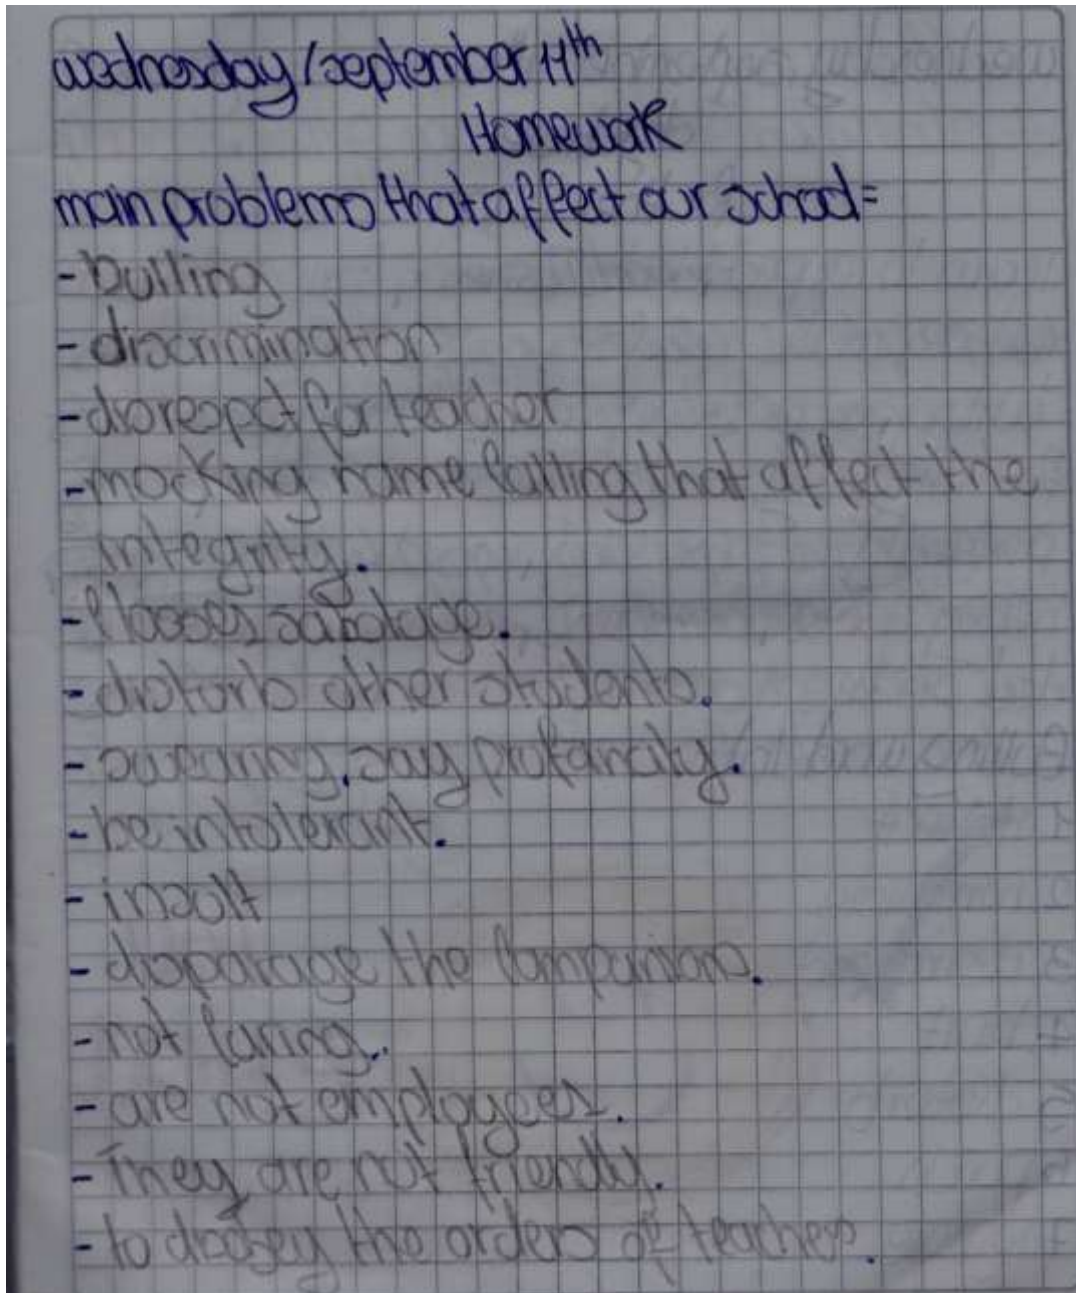 wednesday/september 11th
Homework
main problems that affect our school=
- bulling
- discrimination
- disrespct for teacher
- mocking name calling that affect the
integrity.
- classes sabotage.
- disturb other students.
- swearing, say profancity.
- be intolerant.
- insult
- disparage the companions.
- not caring.
- are not employees.
- They are not friendly.
- to disobey the orders of teachers.